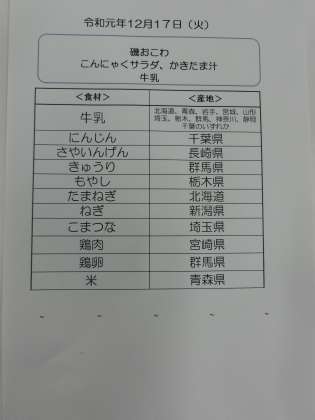 令和元年12月17日（火）
磯おこわ
こんにゃくサラダ、かきたま汁
牛乳
＜食材＞ ＜産地＞
牛乳 北海道、青森、岩手、宮城、山形
埼玉、栃木、群馬、神奈川、静岡
千葉のいずれか
にんじん 千葉県
さやいんげん 長崎県
きゅうり 群馬県
もやし 栃木県
たまねぎ 北海道
ねぎ 新潟県
こまつな 埼玉県
鶏肉 宮崎県
鶏卵 群馬県
米 青森県
~ ~ ~ ~ ~